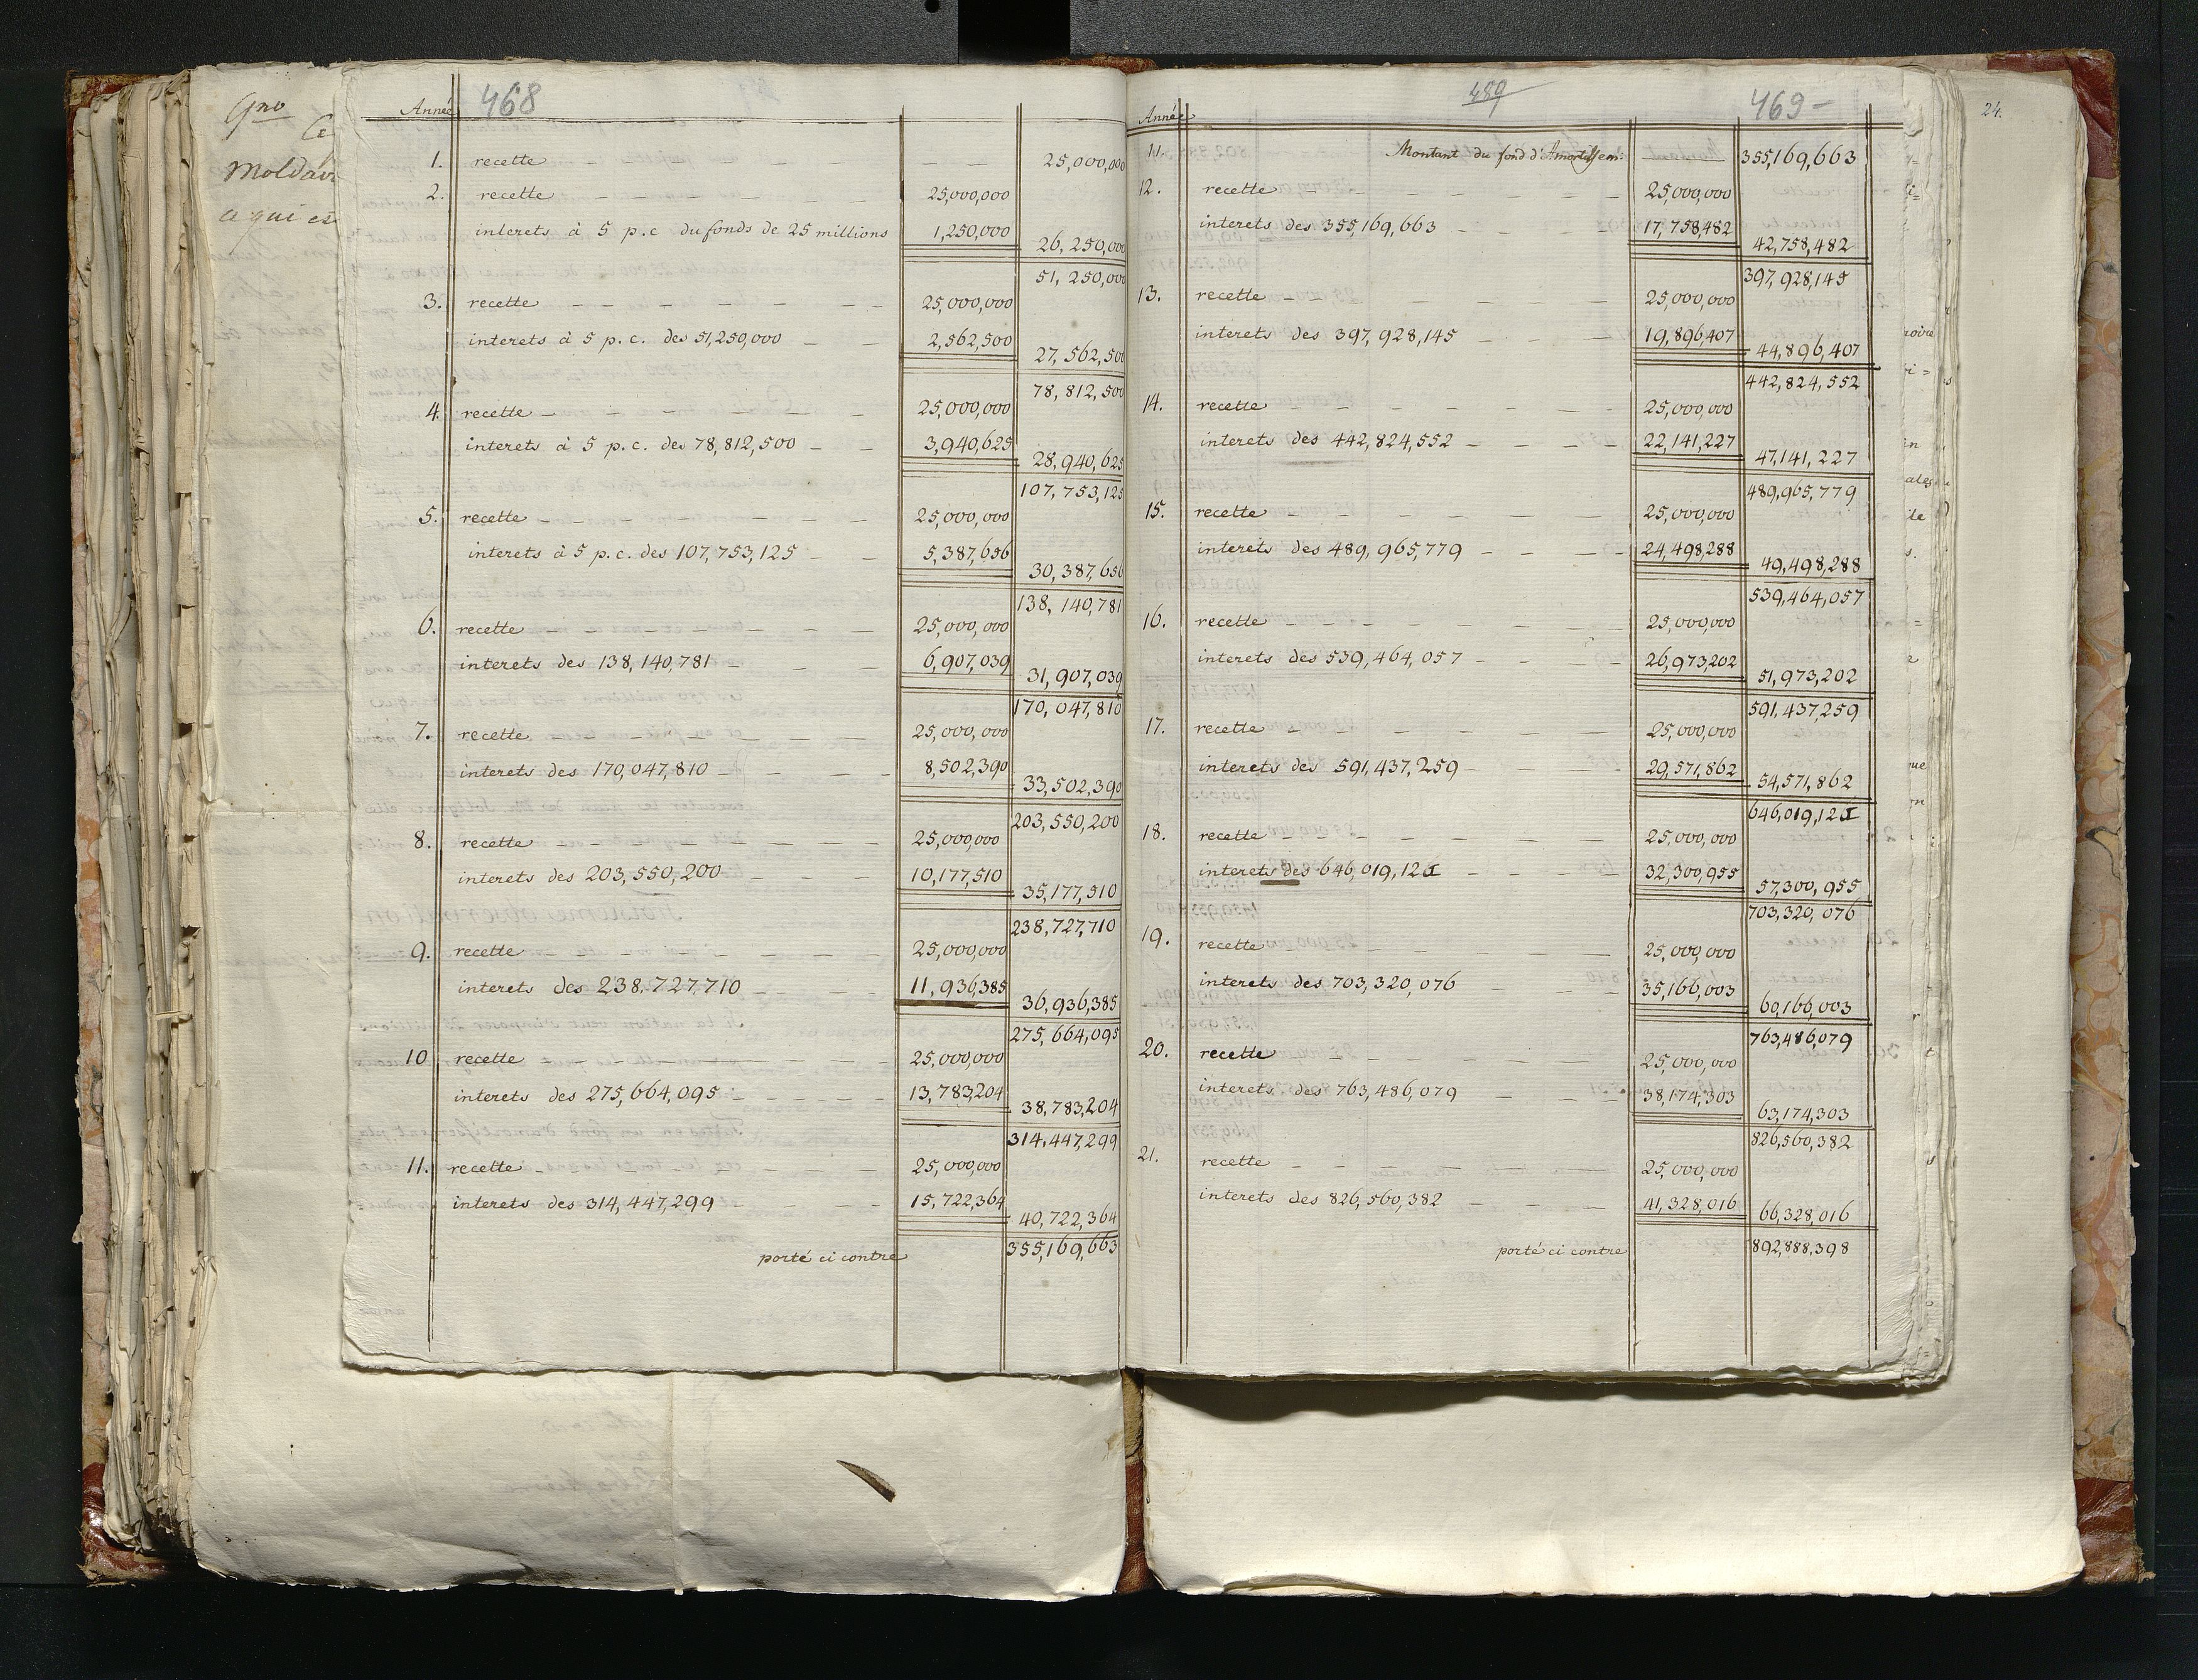 468
Année
1. recette 25,000,000
2. recette 25,000,000
interets à 5 p.c du fonds de 25 millions 1,250,000
26,250,000
51,250,000
3. recette 25,000,000
interets à 5 p.c. des 51,250,000 2,562,500
27,562,500
78,812,500
4. recette 25,000,000
interets à 5 p.c. des 78,812,500 3,940,625
28,940,625
107,753,125
5. recette 25,000,000
interets à 5 p.c. des 107,753,125 5,387,656
30,387,656
138,140,781
6. recette 25,000,000
interets des 138,140,781 6,907,039
31,907,039
170,047,810
7. recette 25,000,000
interets des 170,047,810 8,502,390
33,502,390
203,550,200
8. recette 25,000,000
interets des 203,550,200 10,177,510
35,177,510
238,727,710
9. recette 25,000,000
interets des 238,727,710 11,936,385
36,936,385
275,664,095
10 recette 25,000,000
interets des 275,664,095 13,783,204
38,783,204
314,447,299
11. recette 25,000,000
interets des 314,447,299 15,722,364
40,722,364
porté ci contre 355,169,663
489
469
Année
11. Montant du fond d'Amortissem: 355,169,663
12. recette 25,000,000
interets des 355,169,663 17,758,482
42,758,482
397,928,145
13. recette 25,000,000
interets des 397,928,145 19,896,407
44,896,407
442,824,552
14. recette 25,000,000
interets des 442,824,552 22,141,227
47,141,227
489,965,779
15. recette 25,000,000
interets des 489,965,779 24,498,288
49,498,288
539,464,057
16. recette 25,000,000
interets des 539,464,057 26,973,202
51,973,202
591,437,259
17. recette 25,000,000
interets des 591,437,259 29,571,862
54,571,862
646,019,121
18. recette 25,000,000
interets des 646,019,121 32,300,955
57,300,955
703,320,076
19. recette 25,000,000
interets des 703,320,076 35,166,003
60,166,003
763,486,079
20. recette 25,000,000
interets des 763,486,079 38,174,303
63,174,303
826,560,382
21. recette 25,000,000
interets des 826,560,382 41,328,016
66,328,016
porté ci contre 892,888,398
24.